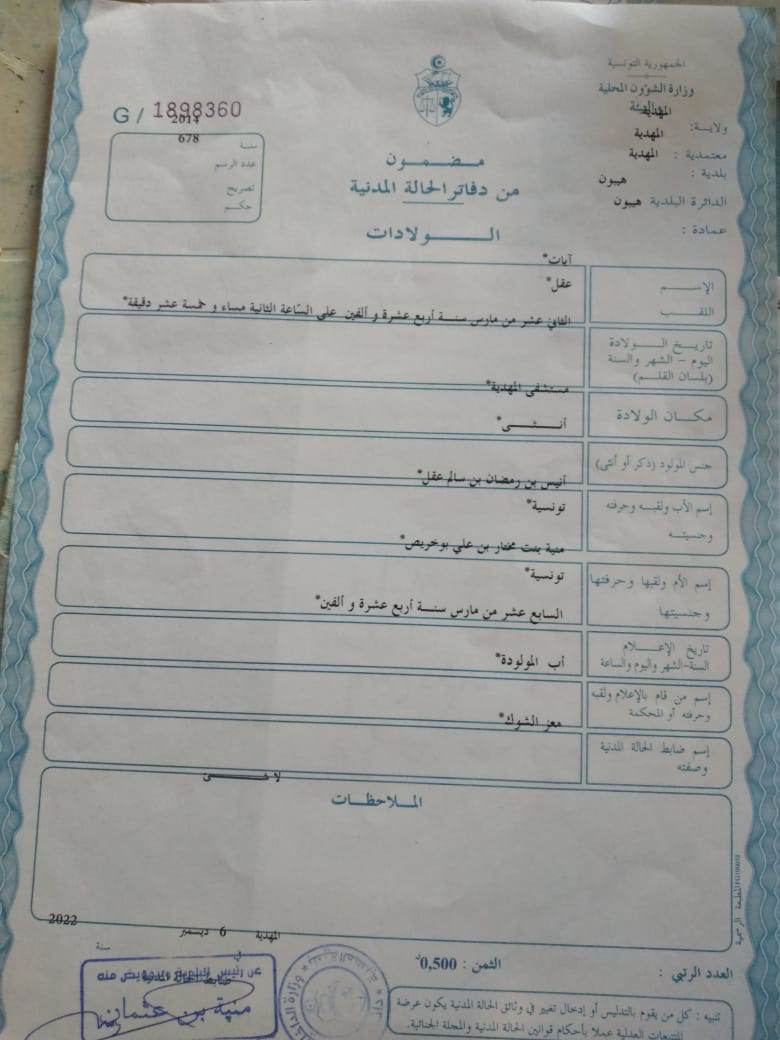 الجمهورية التونسية
وزارة الشؤون المحلية
ولاية: المهدية
معتمدية : المهدية
بلدية : المهدية
هيبون
الدائرة البلدية هيبون
عمادة :
G / 1898360
2014
678
سنة
عدد الرسم
تصريح
حكم
مضمون
من دفاتر الحالة المدنية
الولادات
الإسم
آيات*
اللقب
عقل*
تاريخ الولادة
اليوم – الشهر والسنة
(بلسان القلم)
الثاني عشر من مارس سنة أربع عشرة و ألفين على الساعة الثانية مساء و خمسة عشر دقيقة*
مكان الولادة
مستشفى المهدية*
جنس المولود (ذكر أو أنثى)
أنثى*
إسم الأب ولقبه وحرفته
وجنسيته
أنيس بن رمضان بن سالم عقل*
تونسية*
إسم الأم ولقبها وحرفتها
وجنسيتها
منية بنت مختار بن علي بوخريص*
تونسية*
تاريخ الإعلام
السنة-الشهر واليوم والساعة
السابع عشر من مارس سنة أربع عشرة و ألفين*
إسم من قام بالإعلام ولقبه
وحرفته أو المحكمة
أب المولودة*
إسم ضابط الحالة المدنية
وصفته
معز الشوك*
لا شئ
الملاحظات
المطبعة الرسمية
المهدية 6 ديسمبر 2022
في سنة
ضابط الحالة المدنية
عن رئيس البلدية وبتفويض منه
منية بن عثمان
العدد الرتبي :
الثمن : 0,500د
تنبيه : كل من يقوم بالتدليس أو إدخال تغيير في وثائق الحالة المدنية يكون عرضة
للتتبعات العدلية عملا بأحكام قوانين الحالة المدنية والمجلة الجنائية.